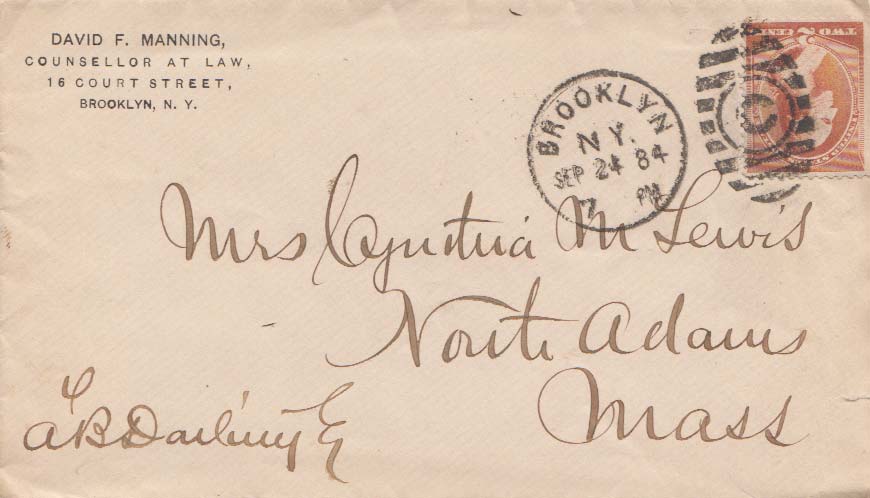 DAVID F. MANNING,
COUNSELLOR AT LAW,
16 COURT STREET,
BROOKLYN, N. Y.
BROOKLYN
N.Y.
SEP 24 84
7 PM
C
TWO 2 CENTS
Mrs Cynthia M Lewis
North Adams
Mass
℅
A B Darling Esq